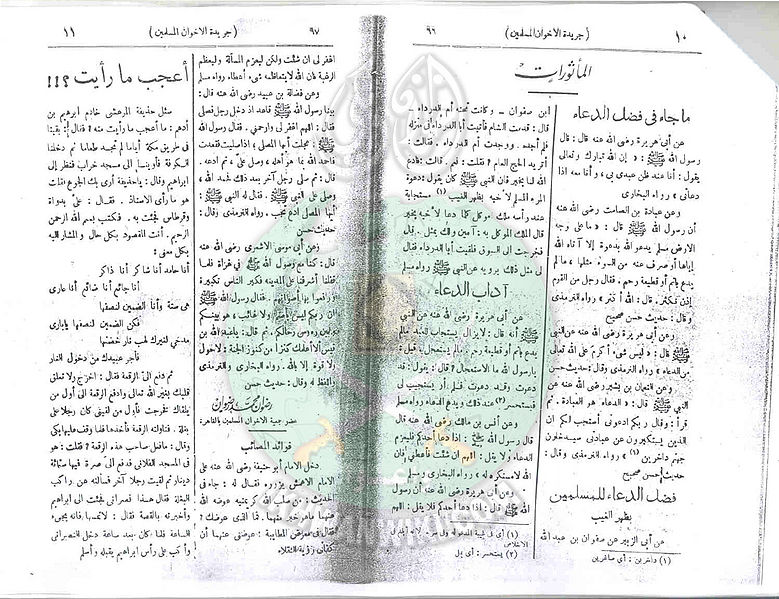 ١٠
( جريدة الاخوان المسلمين )
٩٦
المأثورات
ما جاء فى فضل الدعاء
عن أبى هريرة رضى الله عنه قال : قال
رسول الله ﷺ : « إن الله تبارك وتعالى
يقول : أنا عند ظن عبدى بى ، وأنا معه اذا
دعانى » رواه البخارى
وعن عبادة بن الصامت رضى الله عنه
أن رسول الله ﷺ قال : « ما على وجه
الارض مسلم يدعو الله بدعوة إلا آتاه الله
إياها أو صرف عنه من السوء مثلها ، ما لم
يدع بإثم أو قطيعة رحم . فقال رجل من القوم
إذن نكثر . قال : الله أكثر » رواه الترمذى
وقال : حديث حسن صحيح
وعن أبى هريرة رضى الله عنه عن النبى
ﷺ قال : « ليس شىء أكرم على الله تعالى
من الدعاء » رواه الترمذى وقال : حديث حسن
وعن النعمان بن بشير رضى الله عنه عن
النبى ﷺ قال : « الدعاء هو العبادة . ثم
قرأ : وقال ربكم ادعونى أستجب لكم ان
الذين يستكبرون عن عبادتى سيدخلون
جهنم داخرين (١) » رواه الترمذى وقال :
حديث حسن صحيح
فضل الدعاء للمسلمين
بظهر الغيب
عن أبى الزبير عن صفوان بن عبد الله
(١) داخرين : أى صاغرين
ابن صفوان ـ وكانت تحته أم الدرداء ـ
قال : قدمت الشام فأتيت أبا الدرداء فى منزله
فلم أجده . ووجدت أم الدرداء . فقالت :
أتريد الحج العام ؟ فقلت : نعم . قالت : فادع
الله لنا بخير فان النبى ﷺ كان يقول : دعوة
المرء المسلم لأخيه بظهر الغيب (١) مستجابة
عند رأسه ملك موكل كلما دعا لأخيه بخير
قال الملك الموكل به : آمين ولك بمثل . قال
فخرجت الى السوق فلقيت أبا الدرداء فقال
لى مثل ذلك يرويه عن النبى ﷺ رواه مسلم
آداب الدعاء
عن أبى هريرة رضى الله عنه عن النبى
ﷺ أنه قال : لا يزال يستجاب للعبد ما لم
يدع بإثم أو قطيعة رحم ، ما لم يستعجل . قيل :
يا رسول الله ما الاستعجال ؟ قال : يقول : قد
دعوت وقد دعوت فلم أر يستجيب لى
فيستحسر (٢) عند ذلك ويدع الدعاء رواه مسلم
وعن أنس بن مالك رضى الله عنه قال
قال رسول الله ﷺ : اذا دعا أحدكم فليعزم
الدعاء ولا يقل : اللهم ان شئت فأعطنى فان
الله لا مستكره له » رواه البخارى ومسلم
وعن أبى هريرة رضى الله عنه أن رسول
الله ﷺ قال : اذا دعا أحدكم فلا يقل : اللهم
(١) أى فى غيبة المدعو له
الاخلاص
(٢) يستحسر : أى يمل
٩٧
( جريدة الاخوان المسلمين )
١١
اغفر لى ان شئت ولكن ليعزم المسألة وليعظم
الرغبة فان الله لا يتعاظمه شىء أعطاه رواه مسلم
وعن فضالة بن عبيد رضى الله عنه قال
بينا رسول الله ﷺ قاعد اذ دخل رجل فصلى
فقال : اللهم اغفر لى وارحمنى . فقال رسول الله
ﷺ : عجلت أيها المصلى ، اذا صليت فقعدت
فاحمد الله بما هو أهله ، وصل على ، ثم ادعه .
قال : ثم صلى رجل آخر بعد ذلك فحمد الله ،
وصلى على النبى ﷺ . فقال له النبى ﷺ :
أيها المصلى ادع تجب . رواه الترمذى وقال :
حديث حسن
وعن أبى موسى الاشعرى رضى الله عنه
قال : كنا مع رسول الله ﷺ فى غزاة فلما
قفلنا أشرفنا على المدينة فكبر الناس تكبيرة
ورفعوا بها أصواتهم . فقال رسول الله ﷺ
ان ربكم ليس بأصم ولا غائب ، هو بينكم
وبين رءوس رحالكم . ثم قال : يا عبد الله بن
قيس ألا أعلمك كنزا من كنوز الجنة : لا حول
ولا قوة إلا بالله . رواه البخارى والترمذى
واللفظ له وقال : حديث حسن
رضوان محمد رضوان
عضو جمعية الاخوان المسلمين بالقاهرة
فوائد المصائب
دخل الامام أبو حنيفة رضى الله عنه على
الامام الاعمش يزوره فقال له : جاء فى
الحديث : من سلب الله كريمتيه عوضه الله
عنهما ما هو خير منهما . فما الذى عوضك ؟
فقال فى معرض المطايبة : عوضنى عنهما أن
كفانى رؤية الثقلاء
أعجب ما رأيت ؟ !!
سئل حذيفة المرعشى خادم ابراهيم بن
أدهم : ما أعجب ما رأيت منه ؟ فقال : بقينا
فى طريق مكة أياما لم نجد طعاما ثم دخلنا
الكوفة فأوينا الى مسجد خراب فنظر إلى
ابراهيم وقال : يا حذيفة أرى بك الجوع فقلت
هو ما رأى الاستاذ . فقال : على بدواة
وقرطاس فجئت به . فكتب بسم الله الرحمن
الرحيم . أنت المقصود بكل حال والمشار اليه
بكل معنى :
أنا حامد أنا شاكر أنا ذاكر
أنا جائع أنا ضائع أنا عارى
هى ستة وأنا الضمين لنصفها
فكن الضمين لنصفها يا بارى
مدحى لغيرك لهب نار خضتها
فأجر عبيدك من دخول النار
ثم دفع الى الرقعة فقال : اخرج ولا تعلق
قلبك بغير الله تعالى وادفع الرقعة الى أول من
يلقاك فخرجت فأول من لقينى كان رجلا على
بغلة . فناولته الرقعة فأخذها فلما وقف عليها بكى
وقال : ما فعل صاحب هذه الرقعة ؟ فقلت : هو
فى المسجد الفلانى فدفع الى صرة فيها ستمائة
دينار ثم لقيت رجلا آخر فسألته عن راكب
البغلة فقال هذا نصرانى فجئت الى ابراهيم
وأخبرته بالقصة فقال : لا تمسها فانه يجىء
الساعة فلما كان بعد ساعة دخل النصرانى
وأكب على رأس ابراهيم يقبله وأسلم